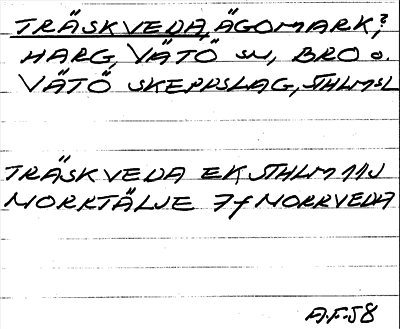 TRÄSKVEDA, ÄGOMARK?,
HARG, VÄTÖ SN, BRO O.
VÄTÖ SKEPPSLAG, STHLMSL
TRÄSKVEDA EK STHLM 11J
NORRTÄLJE 7f NORRVEDA
A.F.58